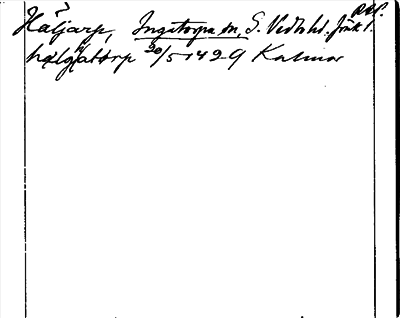 RAP.
Häljarp, Ingatorpa sn, S. Vedbo hd. Jönk l.
hælghathorp 20/5 1429 Kalmar